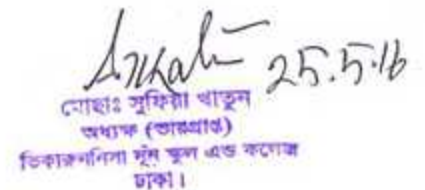 25.5.16
মোছাঃ সুফিয়া খাতুন
অধ্যক্ষ (ভারপ্রাপ্ত)
ভিকারুননিসা নূন স্কুল এন্ড কলেজ
ঢাকা।